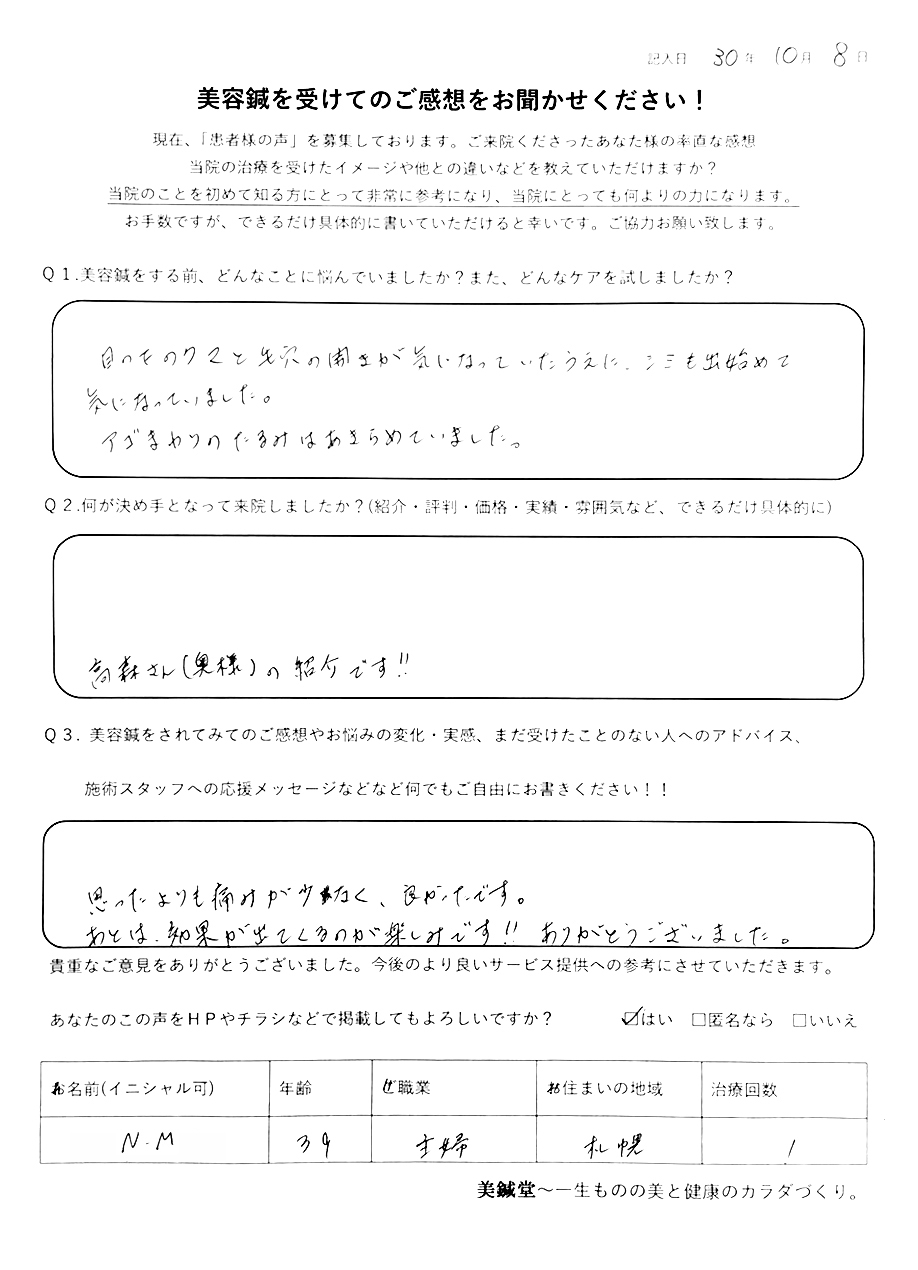 記入日 30年 10月 8日
美容鍼を受けてのご感想をお聞かせください！
現在、「患者様の声」を募集しております。ご来院くださったあなた様の率直な感想
当院の治療を受けたイメージや他との違いなどを教えていただけますか？
当院のことを初めて知る方にとって非常に参考になり、当院にとっても何よりの力になります。
お手数ですが、できるだけ具体的に書いていただけると幸いです。ご協力お願い致します。
Ｑ１.美容鍼をする前、どんなことに悩んでいましたか？また、どんなケアを試しましたか？
目の下のクマと毛穴の開きが気になっていたうえに、シミも出始めて
気になっていました。
アゴまわりのたるみはあきらめていました。
Ｑ２.何が決め手となって来院しましたか？(紹介・評判・価格・実績・雰囲気など、できるだけ具体的に)
高森さん(奥様)の紹介です!!
Ｑ３. 美容鍼をされてみてのご感想やお悩みの変化・実感、まだ受けたことのない人へのアドバイス、
施術スタッフへの応援メッセージなどなど何でもご自由にお書きください！！
思ったよりも痛みが少なく、良かったです。
あとは、効果が出てくるのが楽しみです!! ありがとうございました。
貴重なご意見をありがとうございました。今後のより良いサービス提供への参考にさせていただきます。
あなたのこの声をＨＰやチラシなどで掲載してもよろしいですか？ ☑はい □匿名なら □いいえ
お名前(イニシャル可) 年齢 ご職業 お住まいの地域 治療回数
N.M 39 主婦 札幌 1
美鍼堂～一生ものの美と健康のカラダづくり。